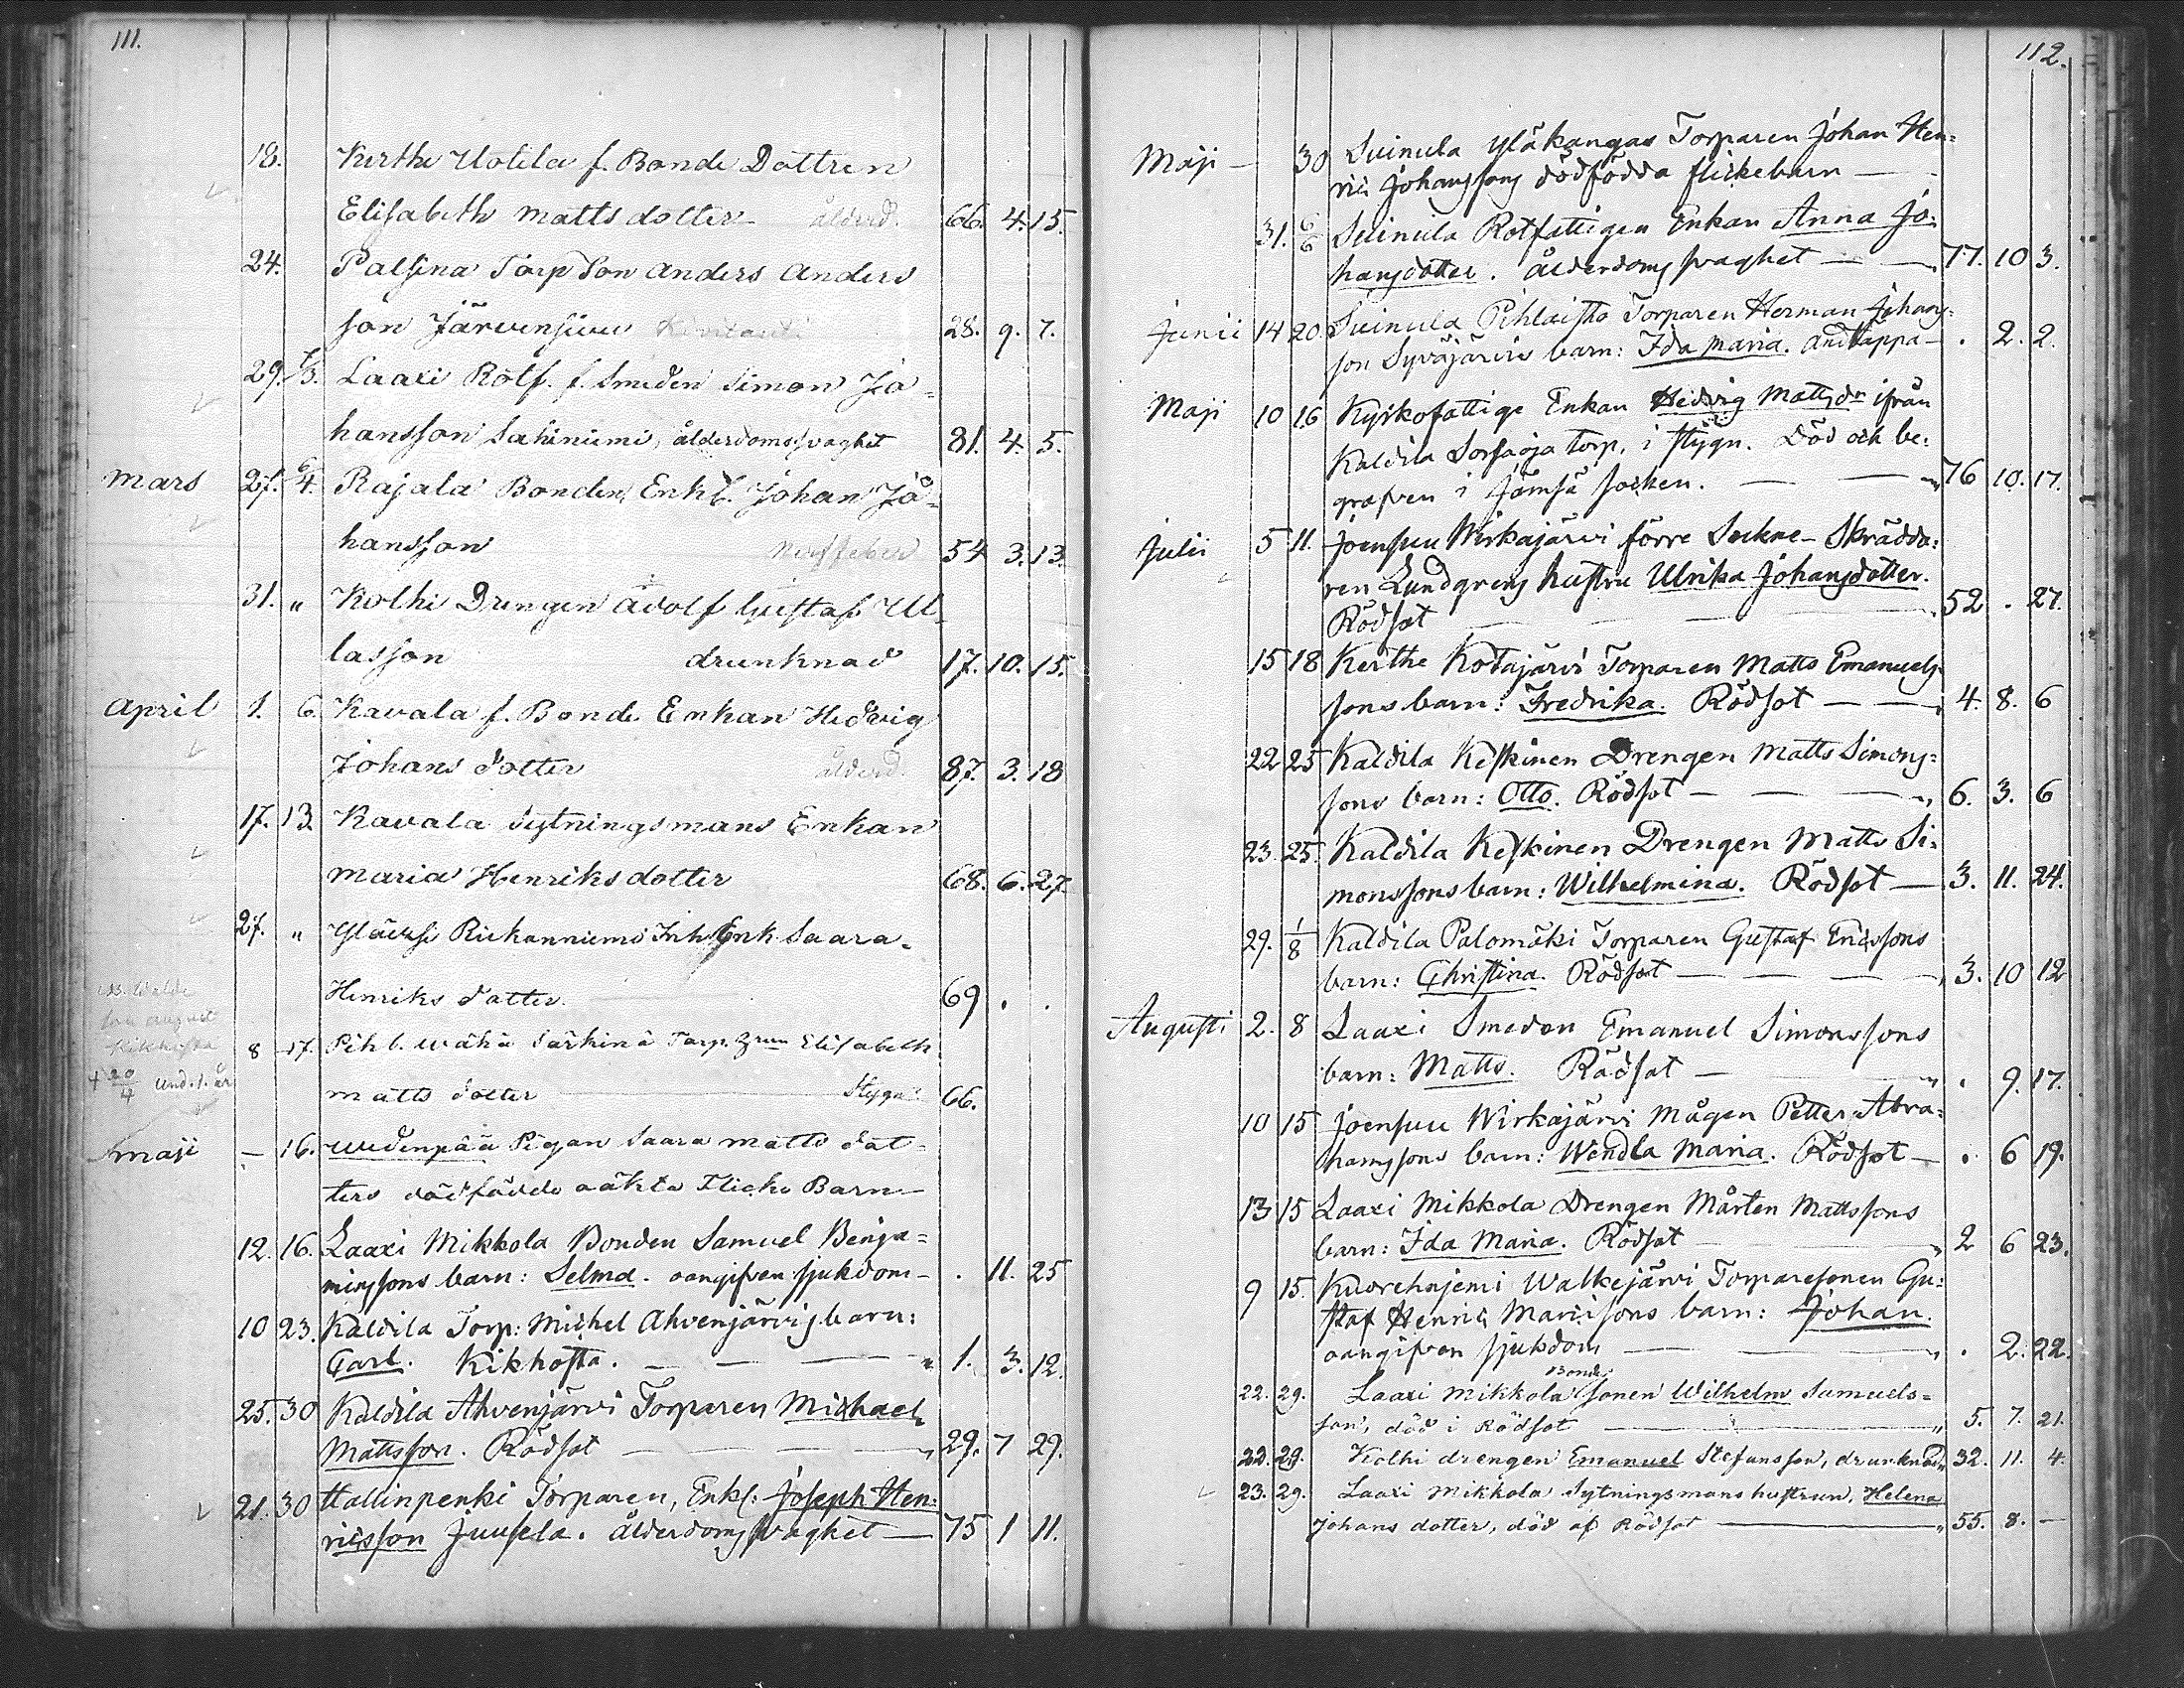 111.
18. Kerthe Uotila f. Bonde Dottren
Elisabeth Matts dotter ålderd. 66. 4. 15.
24. Palsina Torp Son Anders Anders
son Järvensivu 28. 9. 7.
29. 1/3. Laaxi Rotf. f. Smeden Simon Jo=
hansson Sahiniemi, ålderdomssvaghet 81. 4. 5.
Mars 27. 6/4. Rajala Bonden, Enkl. Johan Jo=
hansson Nerffeber 54 3. 13.
31. " Kolhi Drengen Adolf Gustaf Ul
lasson drunknad 17. 10. 15.
April 1. 6. Kavala f. Bonde Enkan Hedvig
Johans dotter ålderd. 87. 3. 18
17. 13 Kavala Sytningsmans Enkan
Maria Henriks dotter 68. 6. 27
27. " Yläexsi Riihanniemi Inh. Enk Saara
Henriks dotter. 69 . .
8 17. Pihl. Wähä Särkinä Torp. Elisabeth
Matts dotter Stygn 66.
+ 20/4 und. 1. år
Maji — 16. Wedenpää Pigan Saara Matts dot=
ters dödfödde oäkta Flicke Barn
12. 16. Laaxi Mikkola Bonden Samuel Benja=
minssons barn: Selma. oangifven sjukdom — . 11. 25
10 23. Kaldila Torp: Michel Ahvenjärvis barn:
Carl. Kikhosta. — — — " 1. 3. 12.
25. 30 Kaldila Ahvenjärvi Torparen Michael
Mattsson. Rödsot — — — " 29. 7 29.
21. 30 Hallinpenki Torparen, Enkl: Joseph Hen=
ricsson Juusela. ålderdomssvaghet — 75 1 11.
112.
Maji — 30 Suinula Yläkangas Torparen Johan Hen=
ric Johanssons dödfödda flickebarn —
31. 6/6 Suinula Rotfattigen Enkan Anna Jo=
hansdotter. ålderdoms svaghet — " 77. 10 3.
Junii 14 20. Suinula Pihlaisto Torparen Herman Johans=
son Syväjärvis barn: Ida Maria. Andtäppa — . 2. 2.
Maji 10 16 Kyrkofattige Enkan Hedvig Mattsdr ifrån
Kaldila Sorsaoja torp, i stygn. Död och be=
grafven i Jämsä socken. — — " 76 10. 17.
Julii 5 11. Joensuu Wirkajärvi förre Sockne-Skrädda=
ren Lundgrens hustru Ulrika Johansdotter.
Rödsot — — — " 52 . 27.
15 18 Kerthe Kotajärvi Torparen Matts Emanuels=
sons barn: Fredrika. Rödsot — — " 4. 8. 6
22 25 Kaldila Keskinen Drengen Matts Simons=
sons barn: Otto. Rödsot — — — " 6. 3. 6
23. 25. Kaldila Keskinen Drengen Matts Si=
monssons barn: Wilhelmina. Rödsot — 3. 11. 24.
29. 1/8 Kaldila Palomäki Torparen Gustaf Ericssons
barn: Christina. Rödsot — — — " 3. 10 12
Augusti 2. 8 Laaxi Smeden Emanuel Simonssons
barn: Matts. Rödsot — — " . 9. 17.
10 15 Joensuu Wirkajärvi Mågen Petter Abra=
hamssons barn: Wendla Maria. Rödsot — . 6 19.
13 15 Laaxi Mikkola Drengen Mårten Mattssons
barn: Ida Maria. Rödsot — — " 2 6 23.
9 15. Kuorehnjemi Walkejärvi Torparesonen Gu=
staf Henric Maurissons barn: Johan.
oangifven sjukdom — — " . 2. 22.
22. 29. Laaxi Mikkola Bonde sonen Wilhelm Samuels=
son, död i Rödsot — " 5. 7. 21.
22. 29. Kolhi drengen Emanuel Stefansson, drunknad " 32. 11. 4.
23. 29. Laaxi Mikkola Sytningsmans hustrun, Helena
Johans dotter, död af Rödsot — " 55. 8. —